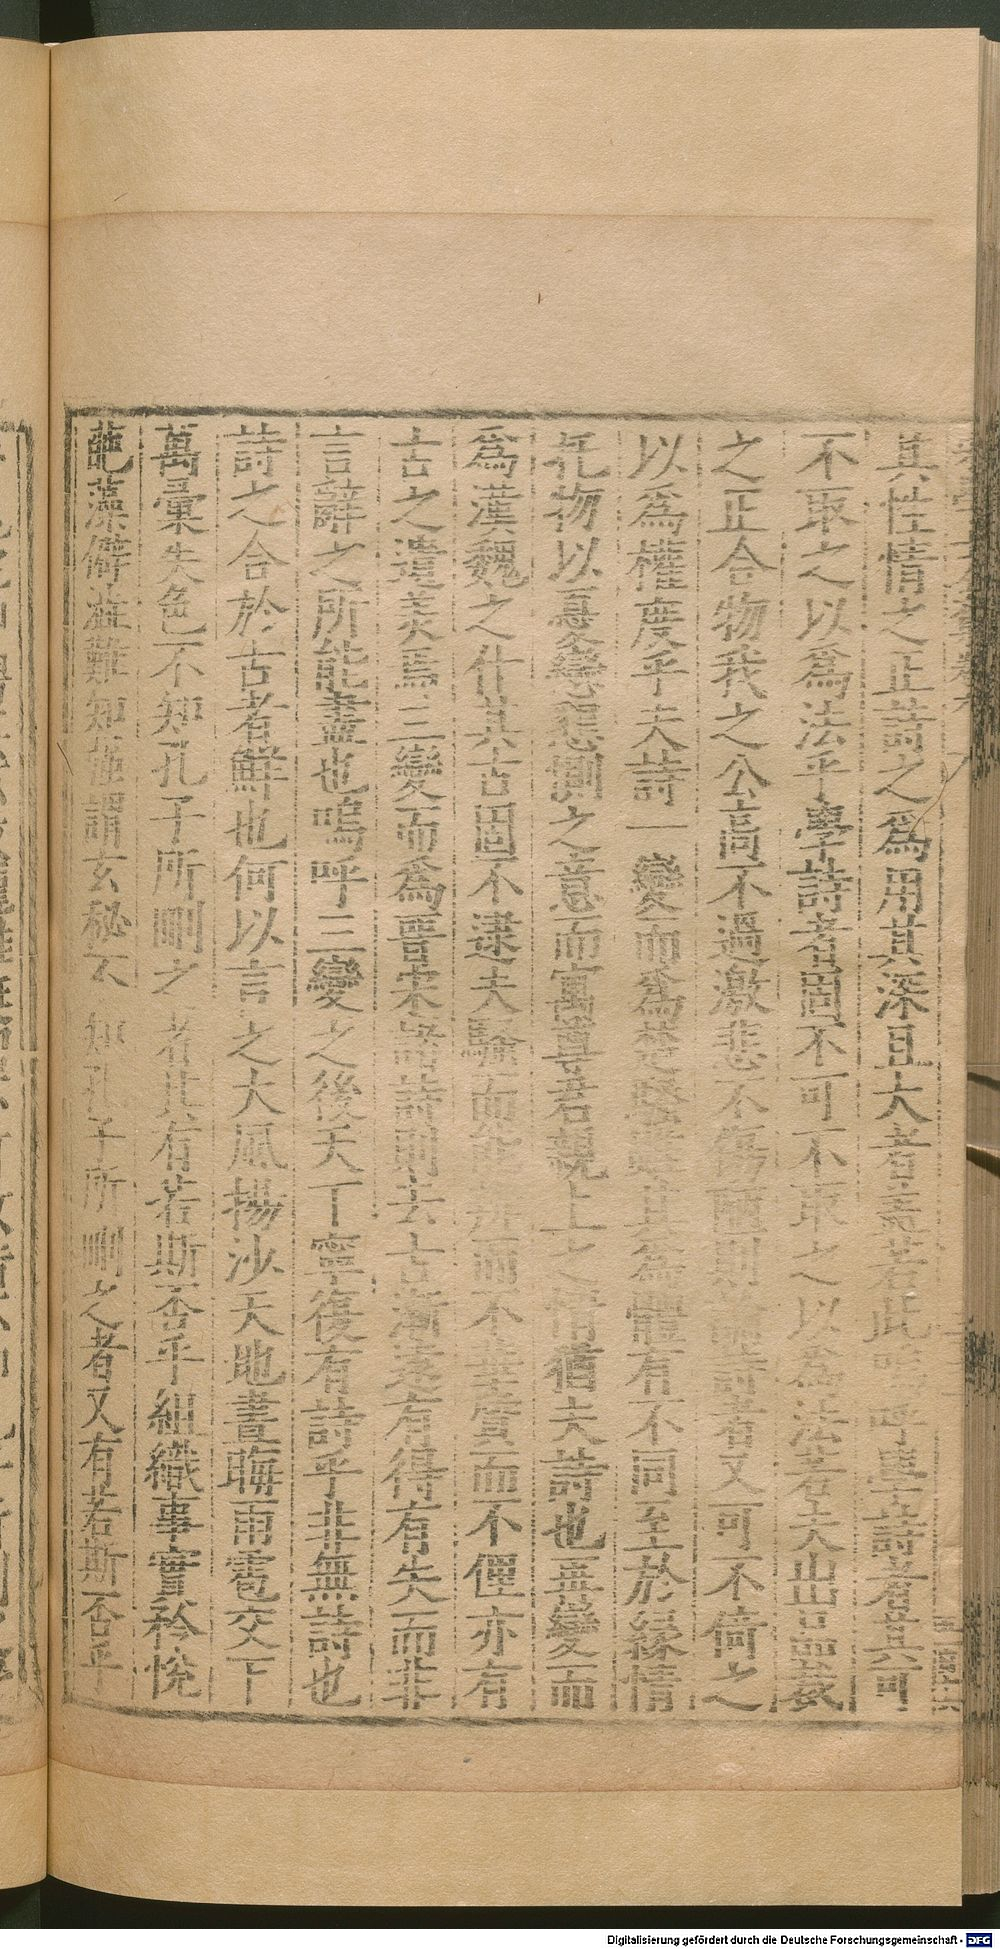 其性情之正詩之為用其深且大者蓋若此嗚呼學詩者其可
不取之以為法乎學詩者固不可不取之以為法若夫出品裁
之正合物我之公高不過激悲不傷
詩者又可不倚之
以為權度乎夫詩一變而為楚騷雖其為體有不同至於緣情
托物以憂戀懇惻之意而寓尊君親上之情猶夫詩也再變而
為漢魏之什其古固不逮夫騷而能辨而不華質而不俚亦有
古之遺美焉三變而為晉宋諸詩則去古漸遠有得有失而非
言辭之所能盡也嗚呼三變之後天下寧復有詩乎非無詩也
詩之合於古者鮮也何以言之大風揚沙天地晝晦雨雹交下
萬彙失色不知孔子所刪之者其有若斯否乎組織事實矜悅
葩藻僻澁難知強謂玄秘不知孔子所刪之者又有若斯否乎
Digitalisierung gefördert durch die Deutsche Forschungsgemeinschaft - DFG